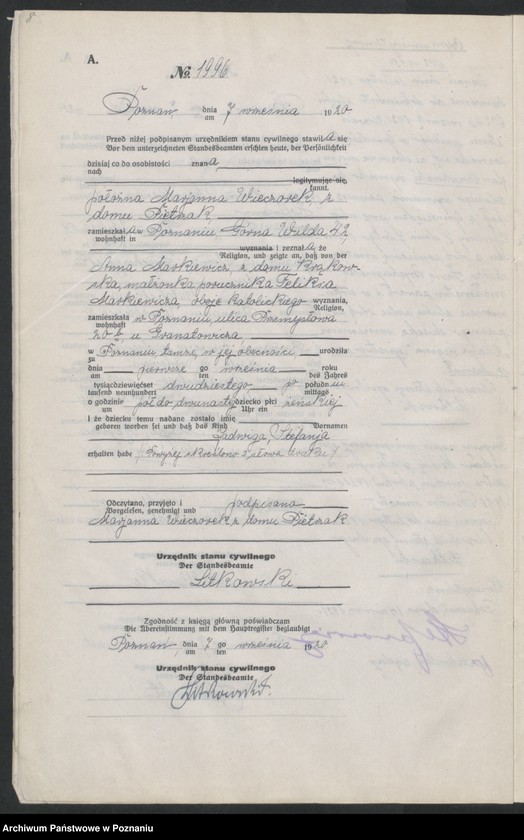 8
A.
No 1996
Poznań dnia 7 września 1920
am
Przed niżej podpisanym urzędnikiem stanu cywilnego stawiła się
Vor dem unterzeichneten Standesbeamten erschien heute, der Persönlichkeit
dzisiaj co do osobistości znana,
nach
legitymując się,
kannt.
położna Marjanna Wieczorek, z
domu Pietrzak
zamieszkała w Poznaniu Górna Wilda 42,
wohnhaft in
wyznania i zeznała, że
Religion, und zeigte an, daß von der
Anna Markiewicz, z domu Krakow-
ska, małżonka porucznika Feliksa
Markiewicza, oboje katolickiego wyznania,
Religion,
zamieszkała w Poznaniu, ulica Przemysłowa
wohnhaft
u Granatowicza
w Poznaniu, tamże, w jej obecności, urodziła
zu
dnia pierwszego września roku
am ten des Jahres
tysiącdziewięćset dwudziestego po południu
tausend neunhundert mittags
o godzinie pół do dwunastej dziecko płci żeńskiej
um Uhr ein
i że dziecku temu nadane zostało imię
geboren worden sei und daß das Kind Vornamen
Jadwiga, Stefanja
erhalten habe Powyżej skreślono słowa druku
Odczytano, przyjęto i podpisano
Vorgelesen, genehmigt und
Marjanna Wieczorek z domu Pietrzak
Urzędnik stanu cywilnego
Der Standesbeamte
Litkowski
Zgodność z księgą główną poświadczam
Die Übereinstimmung mit dem Hauptregister beglaubigt
Poznań, dnia 7 go września 1920
am ten
Urzędnik stanu cywilnego
Der Standesbeamte
Archiwum Państwowe w Poznaniu